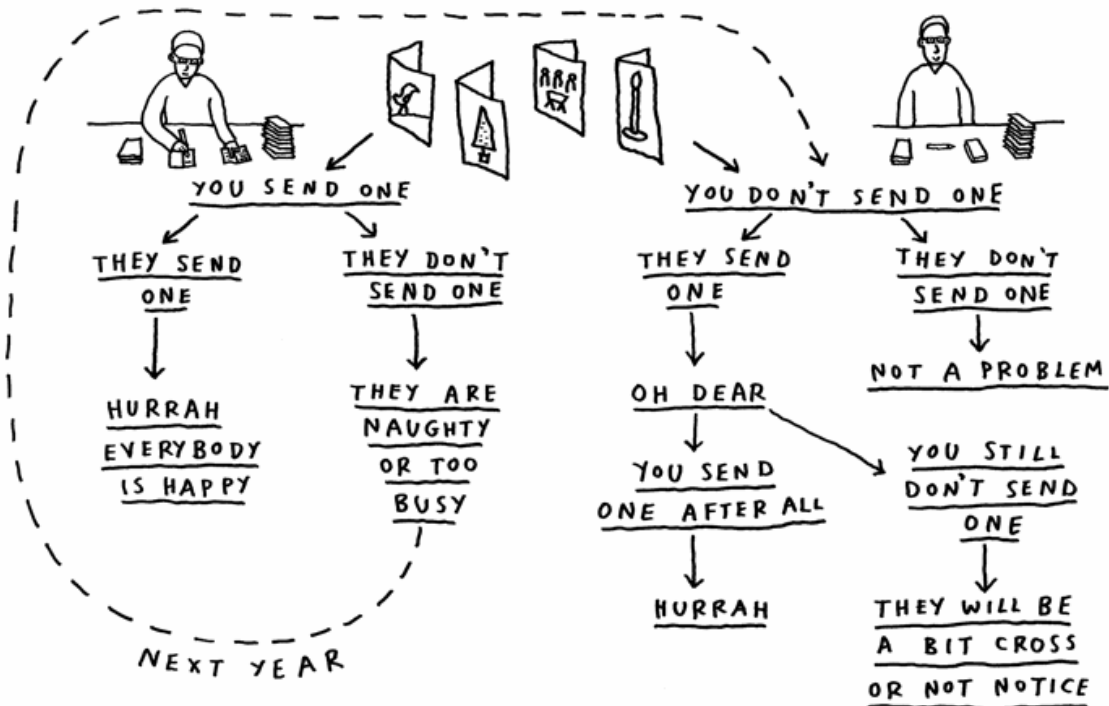 YOU SEND ONE
THEY SEND
ONE
HURRAH
EVERYBODY
IS HAPPY
THEY DON'T
SEND ONE
THEY ARE
NAUGHTY
OR TOO
BUSY
NEXT YEAR
YOU DON'T SEND ONE
THEY SEND
ONE
OH DEAR
YOU SEND
ONE AFTER ALL
HURRAH
YOU STILL
DON'T SEND
ONE
THEY WILL BE
A BIT CROSS
OR NOT NOTICE
THEY DON'T
SEND ONE
NOT A PROBLEM